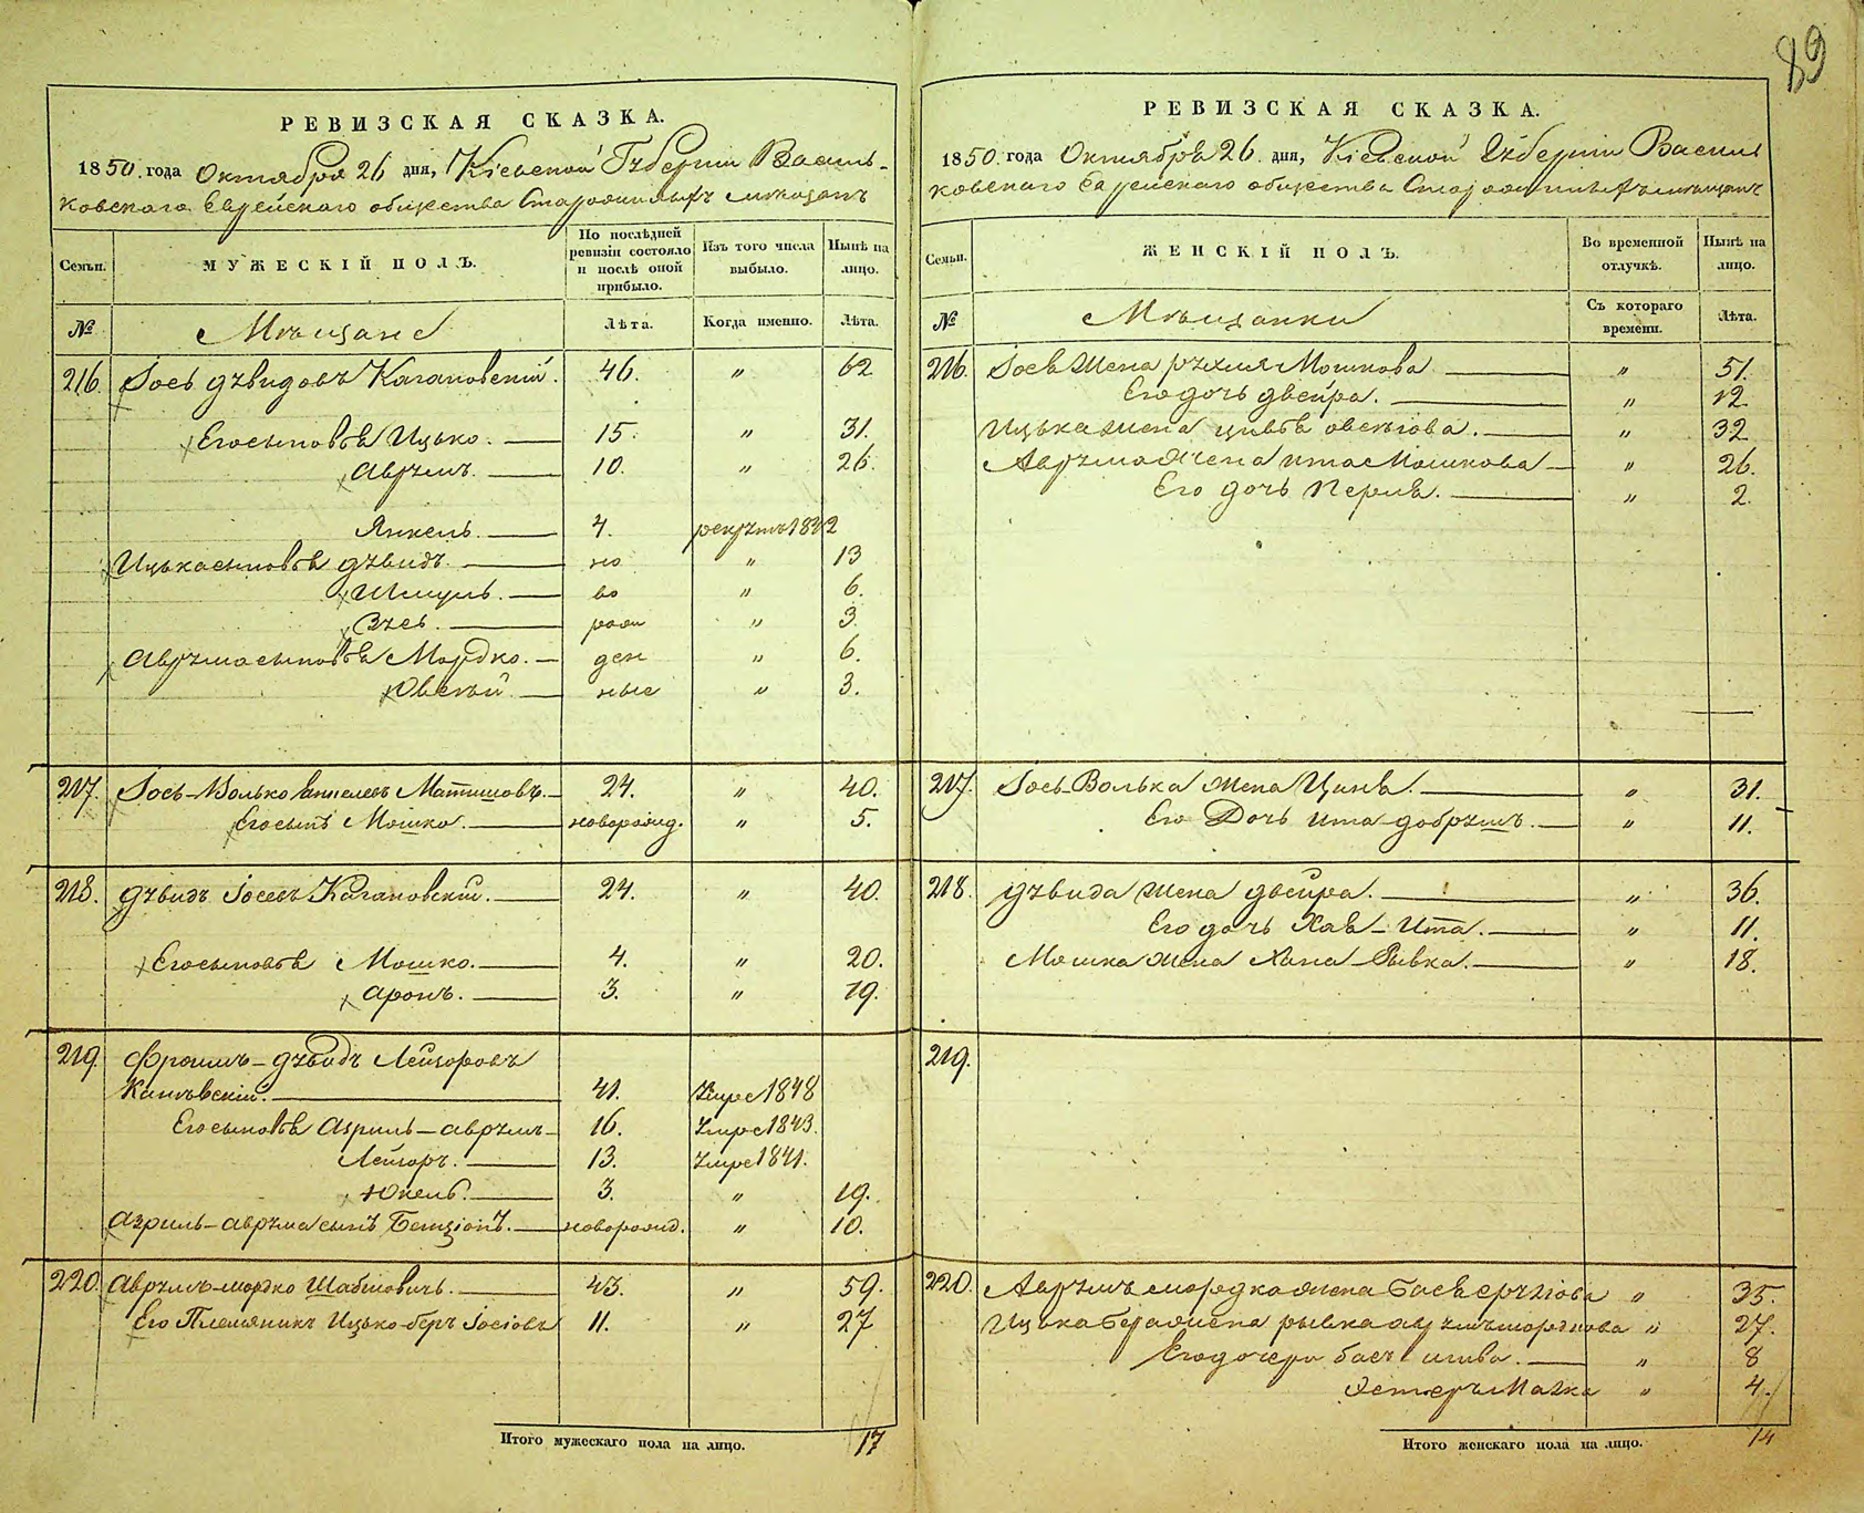 89
РЕВИЗСКАЯ СКАЗКА.
1850. года Октября 26 дня, Кіевской Губерніи Василь-
ковскаго Еврейскаго общества Старожилыхъ мѣщанъ
Семьи.
МУЖЕСКІЙ ПОЛЪ.
По послѣдней ревизіи состояло и послѣ оной прибыло.
Изъ того числа выбыло.
Нынѣ на лицо.
№
Мѣщане
Лѣта.
Когда именно.
Лѣта.
216. Іось Дувидовъ Кагановскій. 46. " 62
Его сыновья Ицько. 15. " 31.
Аврумъ. 10. " 26.
Янкель. 4. рекрутъ 1842
Ицька сыновья Дувидъ. но " 13
Шмуль. во " 6.
Зусь. рож " 3.
Аврума сыновья Мордко. ден " 6.
Овсѣй ные " 3.
217. Іось-Волько Матишовъ. 24. " 40.
Его сынъ Мошко. новорожд. " 5.
218. Дувидъ Іосевъ Кагановскій. 24. " 40.
Его сыновья Мошко. 4. " 20.
Аронъ. 3. " 19.
219. Фроимъ-Дувидъ Лейзоровъ
Каневскій. 41. Умре 1848
Его сыновья Азриль-Аврумъ 16. Умре 1843.
Лейзоръ. 13. Умре 1841.
Юкель. 3. " 19.
Азриль-Аврума сынъ Бенціонъ. новорожд. " 10.
220. Аврумъ-Мордко Шабтовичъ. 43. " 59.
Его Племяникъ Ицько-беръ Іосіовъ 11. " 27
Итого мужескаго пола на лицо. 17
РЕВИЗСКАЯ СКАЗКА.
1850. года Октября 26. дня, Кіевской Губерніи Василь
ковскаго Еврейскаго общества Старожилыхъ мѣщанъ
Семьи.
ЖЕНСКІЙ ПОЛЪ.
Во временной отлучкѣ.
Нынѣ на лицо.
№
Мѣщанки
Съ котораго времени.
Лѣта.
216. Іося Жена Рухля Мошкова " 51.
Его дочь Двейра. " 12
Ицька жена Цивья Овсѣіова. " 32
Аврума Жена Ита Мошкова " 26.
Его дочь Перля. " 2.
217. Іось-Волька Жена Ципя. " 31.
Его Дочь Ита-Добрушъ. " 11.
218. Дувида Жена Двейра. " 36.
Его дочь Хая-Ита. " 11.
Мошка Жена Хана-Рывка. " 18.
219.
220. Аврумъ Мордка жена Бася " 35.
Ицька Бера жена Рывка Аврумъ Мордкова " 27.
Его дочери Бася " 8
Эстеръ Малка " 4.
Итого женскаго пола на лицо. 14